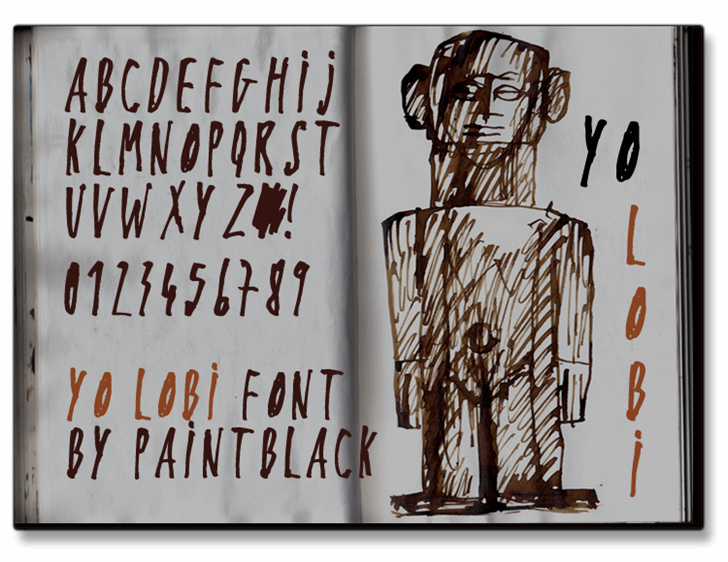 ABCDEFGHij
KLMNOPQRST
UVWXYZ!
0123456789
YO LOBi FONT
BY PAiNTBLACK
YO
L
O
B
i